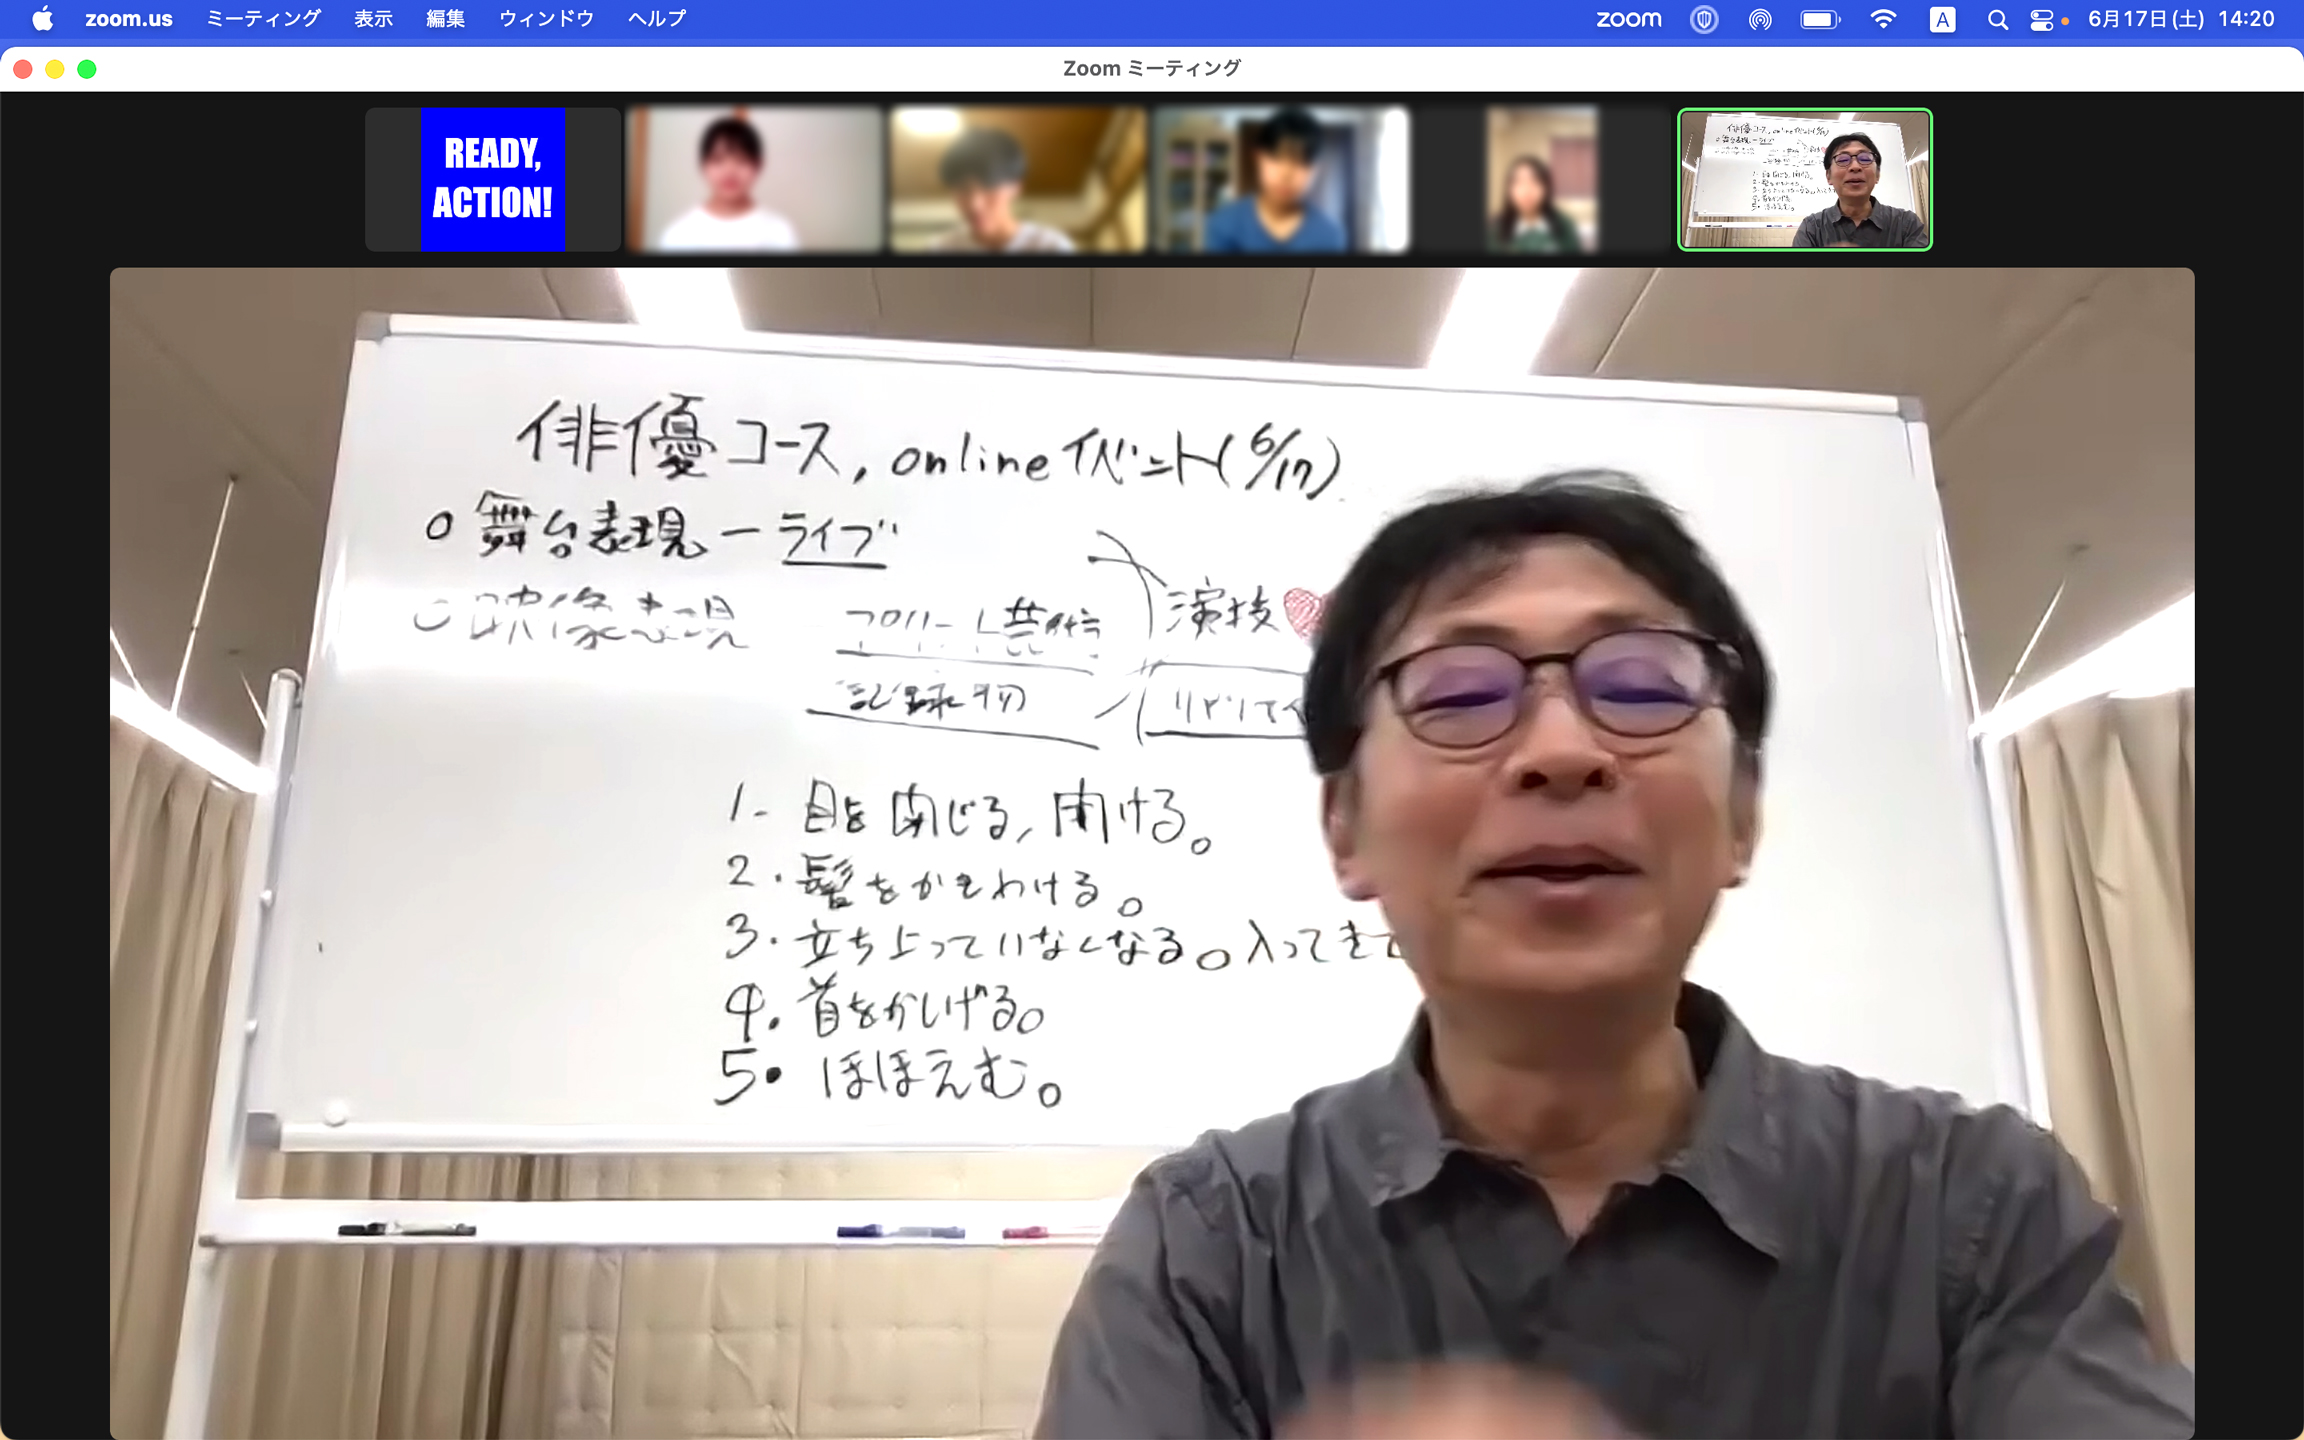 zoom.us ミーティング 表示 編集 ウィンドウ ヘルプ zoom A 6月17日(土) 14:20
Zoom ミーティング
READY,
ACTION!
俳優コース, onlineイベント(6/17)
○ 舞台表現 ー ライブ
○ 映像表現
演技
記録物
1. 目を閉じる, 開ける。
2. 髪をかきわける。
3. 立ち上っていなくなる。入ってきて
4. 首をかしげる。
5. ほほえむ。